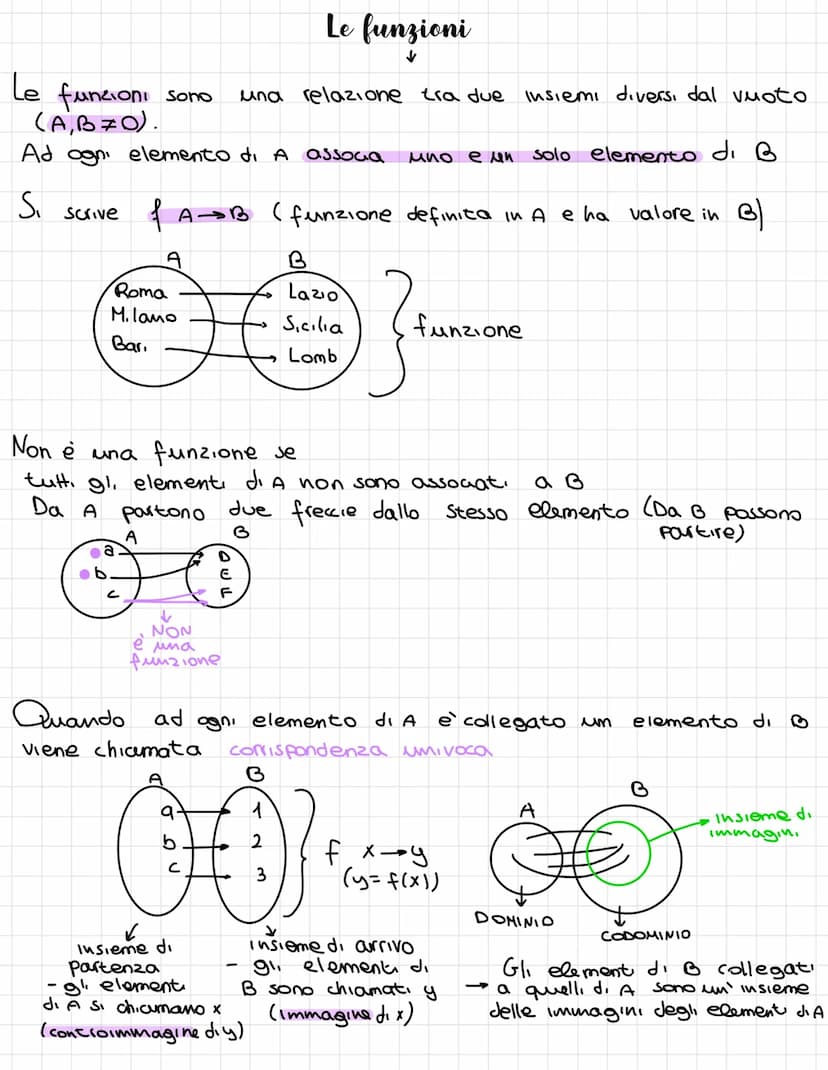 Le funzioni
Le funzioni sono una relazione tra due insiemi diversi dal vuoto
(A,B≠0).
Ad ogni elemento di A associa uno e un solo elemento di B
Si scrive f A→B (funzione definita in A e ha valore in B)
A B
Roma → Lazio
Milano → Sicilia
Bari → Lomb
funzione
Non è una funzione se
tutti gli elementi di A non sono associati a B
Da A partono due freccie dallo stesso elemento (Da B possono
partire)
A B
a D
b E
c F
NON
è una
funzione
Quando ad ogni elemento di A è collegato un elemento di B
viene chiamata corrispondenza univoca
A B
a → 1
b → 2
c → 3
f x→y
(y=f(x))
insieme di
partenza
- gli elementi
di A si chiamano x
(controimmagine di y)
insieme di arrivo
- gli elementi di
B sono chiamati y
(immagine di x)
A B
insieme di
immagini
DOMINIO
CODOMINIO
Gli elementi di B collegati
→ a quelli di A sono un' insieme
delle immagini degli elementi di A